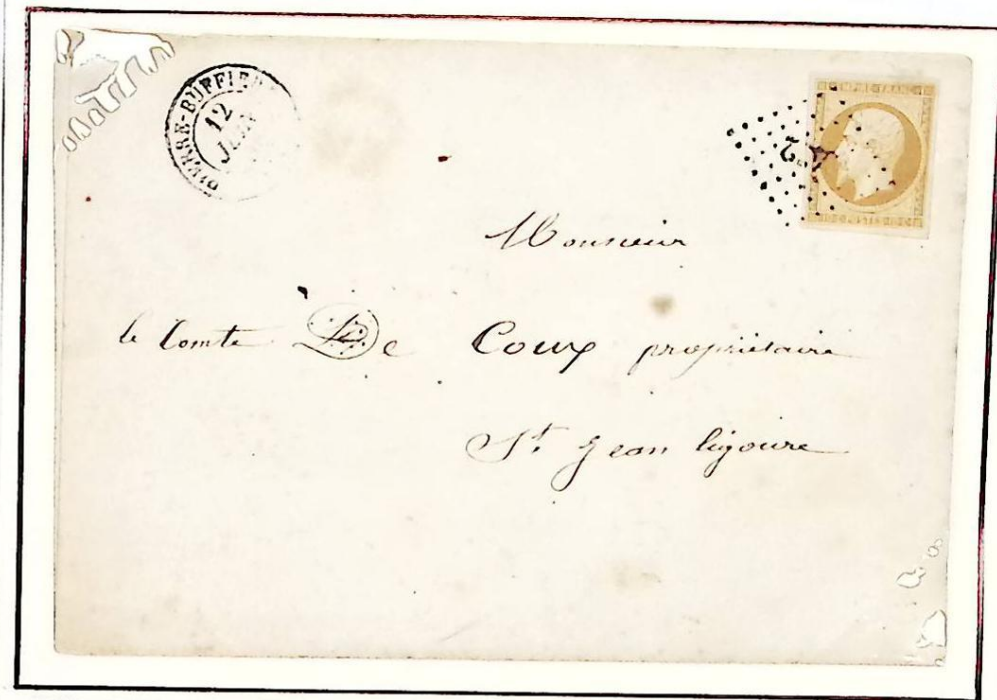 PIERRE-BUFFIE
12
EMPIRE FRANC
Monsieur
le Comte De Coux propriétaire
St. Jean ligoure